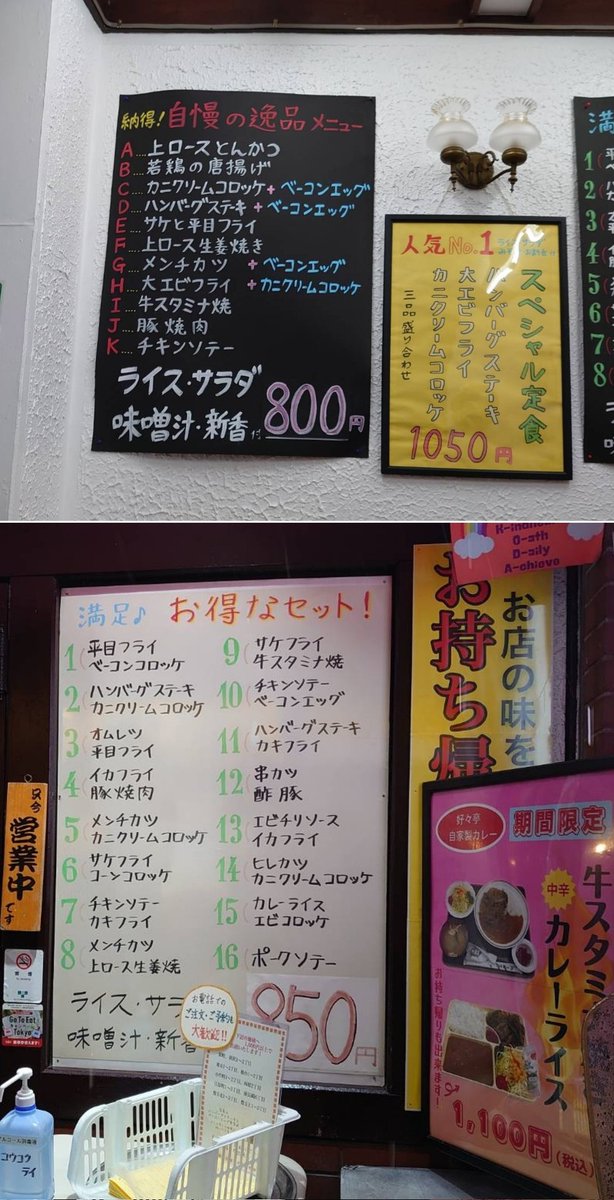 納得!自慢の逸品メニュー
A…上ロースとんかつ
B…若鶏の唐揚げ
C…カニクリームコロッケ+ベーコンエッグ
D…ハンバーグステキ+ベーコンエッグ
E…サケと平目フライ
F…上ロース生姜焼き
G…メンチカツ +ベーコンエッグ
H…大エビフライ +カニクリームコロッケ
I…牛スタミナ焼
J…豚焼肉
K…チキンソテー
ライス・サラダ
味噌汁・新香付800円
人気No.1
スペシャル定食
ハンバーグステーキ
大エビフライ
カニクリームコロッケ
三品盛り合わせ
1050円
満
1
2
3
4
5
6
7
8
満足♪ お得なセット!
1 平目フライ
ベーコンコロッケ
2 ハンバーグステキ
カニクリームコロッケ
3 オムレツ
平目フライ
4 イカフライ
豚焼肉
5 メンチカツ
カニクリームコロッケ
6 サケフライ
コーンコロッケ
7 チキンソテー
カキフライ
8 メンチカツ
上ロース生姜焼
9 サケフライ
牛スタミナ焼
10 チキンソテー
ベーコンエッグ
11 ハンバーグステーキ
カキフライ
12 串カツ
酢豚
13 エビチリソース
イカフライ
14 ヒレカツ
カニクリームコロッケ
15 カレーライス
エビコロッケ
16 ポークソテー
ライス・サラ
味噌汁・新香
850円
お電話での
ご注文・ご予約も
大歓迎!!
K-indness
O-ath
D-aily
A-chieve
お店の味を
お持ち帰
只今
営業中
です
禁煙
Go To Eat
Tokyo
好々亭
自家製カレー
期間限定
牛スタミナ
中辛
カレーライス
お持ち帰りも出来ます!
1,100円(税込)
アルコール消毒液
コウコウ
テイ